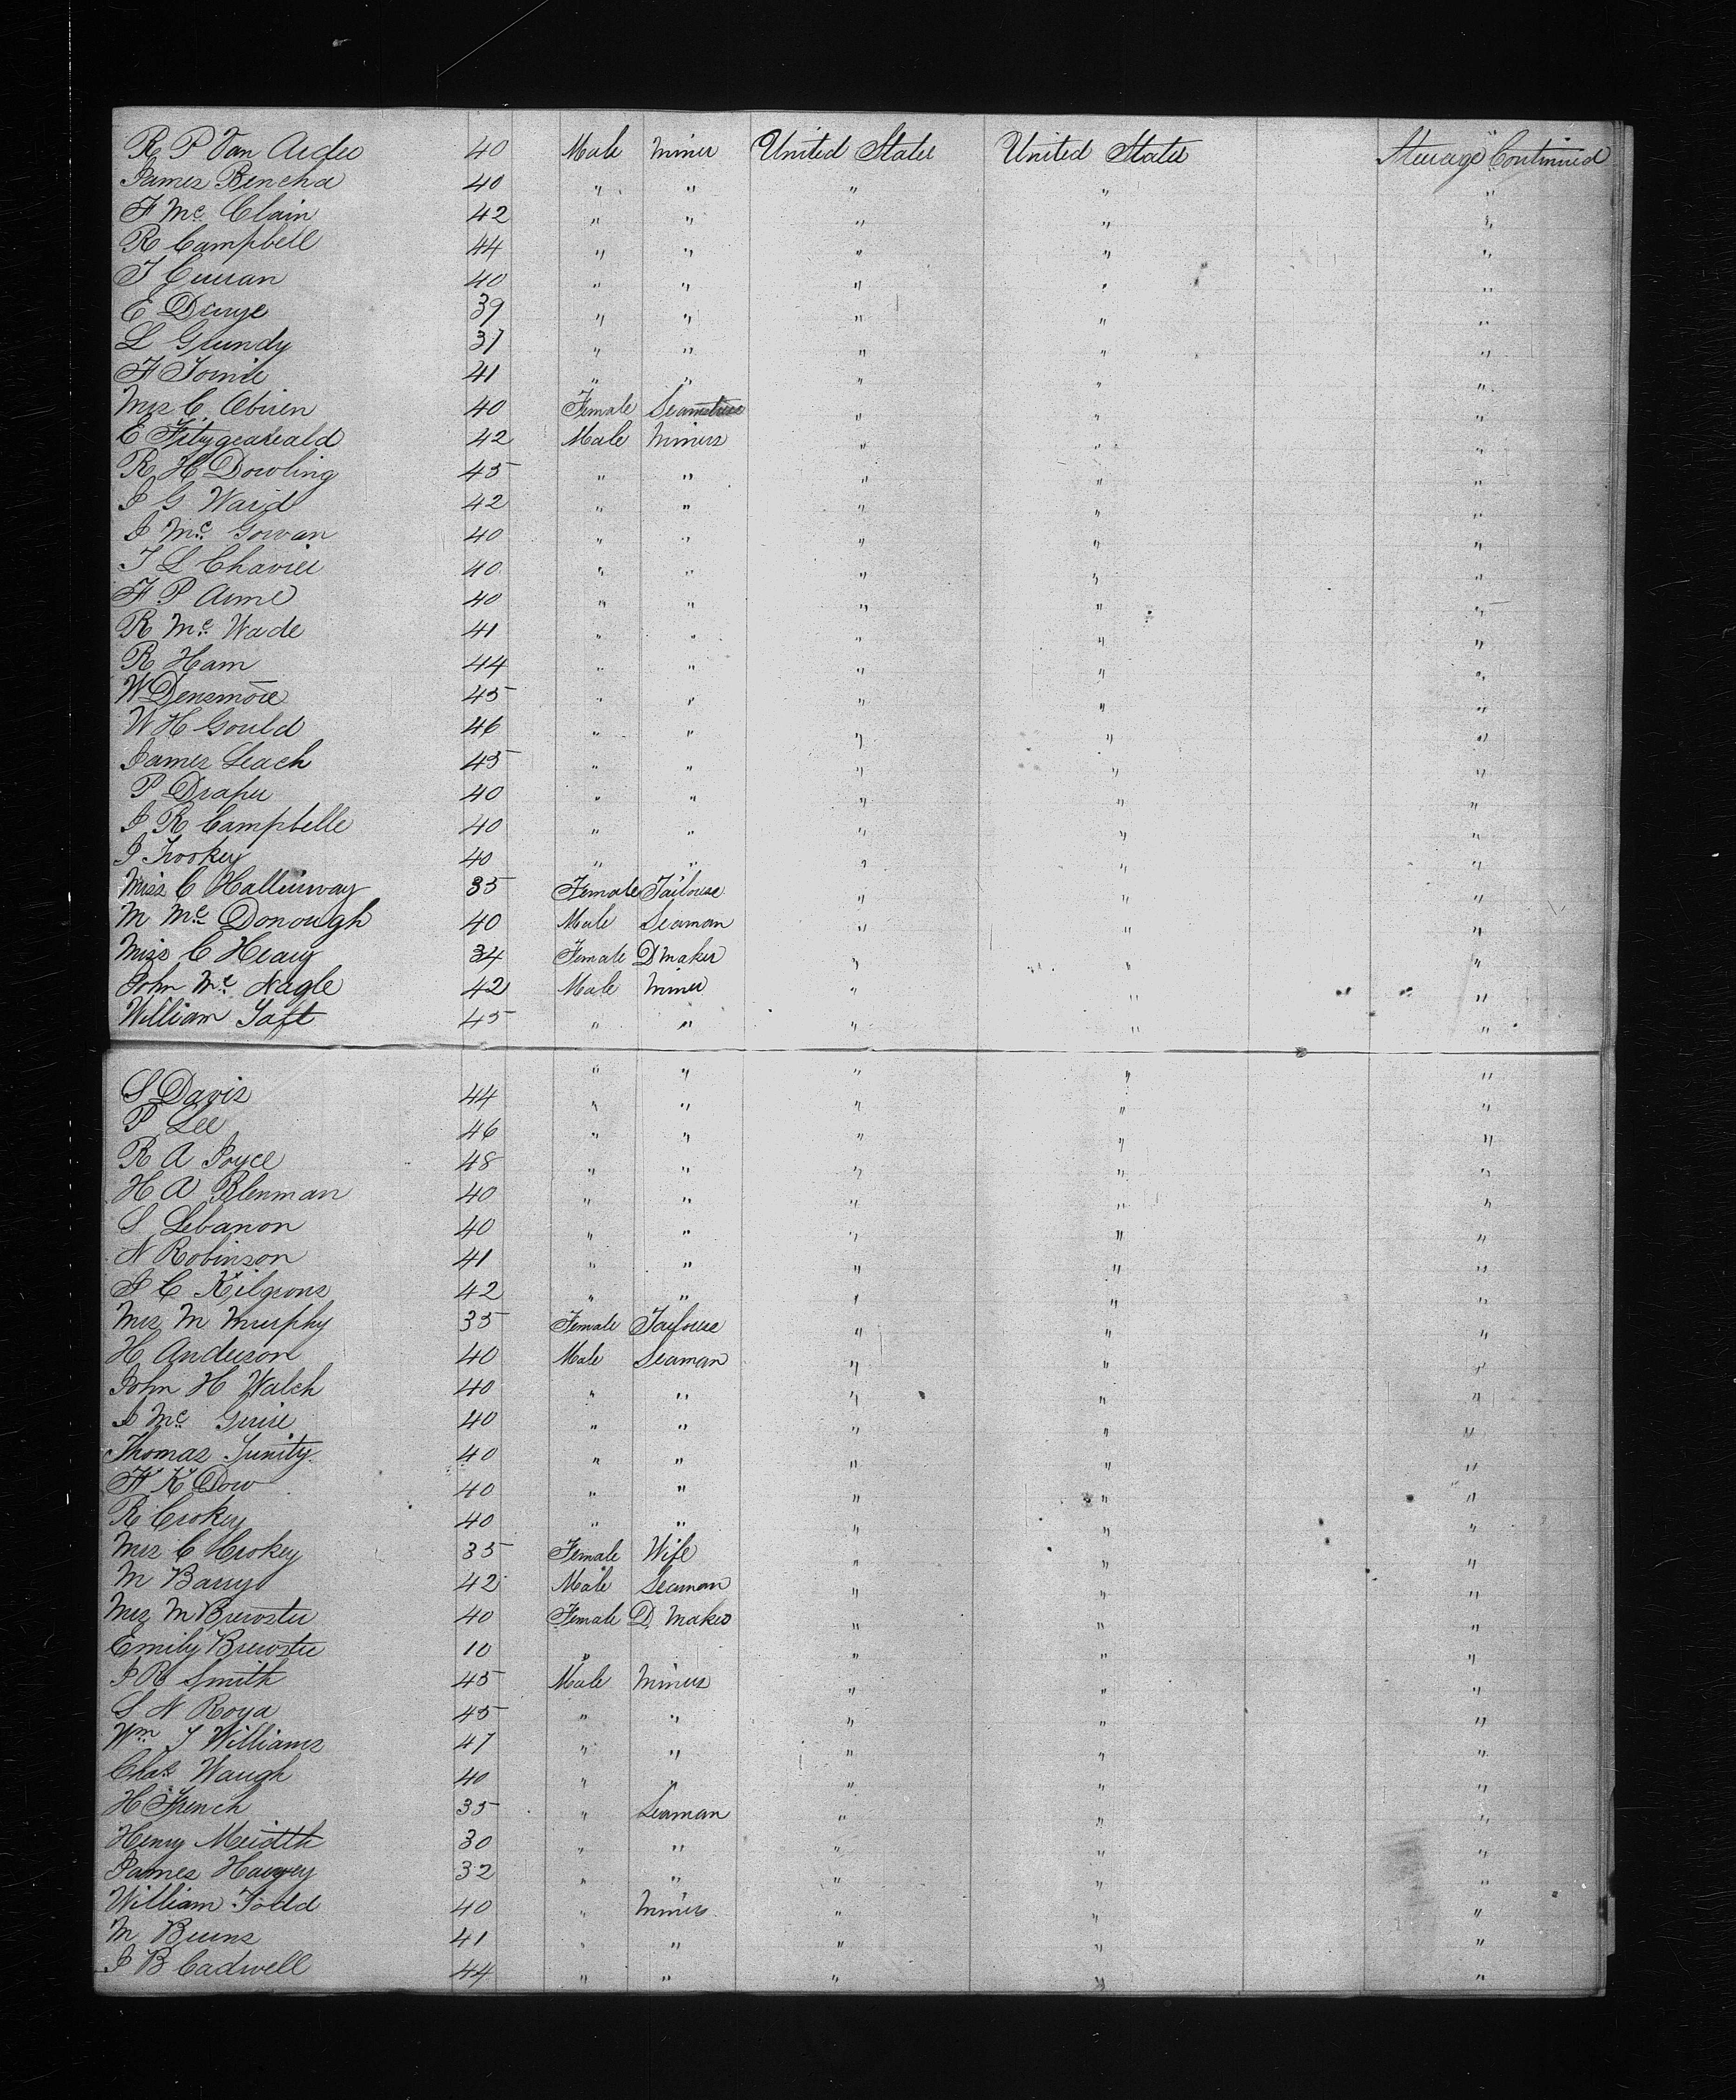 R P Van Arder 40 Male Miner United States United States Steerage Continued
James Bencha 40 " " " " "
F Mc Clain 42 " " " " "
R Campbell 44 " " " " "
T Curran 40 " " " " "
E Druye 39 " " " " "
L Grundy 37 " " " " "
F Towne 41 " " " " "
Mrs C Obrien 40 Female Seamstress " " "
E Fitzgearald 42 Male Miners " " "
R H Dowling 45 " " " " "
J G Ward 42 " " " " "
J Mc Gowan 40 " " " " "
T L Chavier 40 " " " " "
F P Arme 40 " " " " "
R Mc Wade 41 " " " " "
R Ham 44 " " " " "
W Densmore 45 " " " " "
W H Gould 46 " " " " "
James Leach 45 " " " " "
P Draper 40 " " " " "
J R Campbelle 40 " " " " "
J Trooker 40 " " " " "
Miss C Hallerway 35 Female Tailorse " " "
M Mc Donough 40 Male Seaman " " "
Miss C Heary 34 Female D maker " " "
John Mc Nagle 42 Male Miner " " "
William Taft 45 " " " " "
" " " " "
S Davis 44 " " " " "
P Lee 46 " " " " "
R A Joyce 48 " " " " "
H A Blenman 40 " " " " "
S Lebanon 40 " " " " "
N Robinson 41 " " " " "
J C Kilgrons 42 " " " " "
Mrs M Murphy 35 Female Taylorse " " "
H Anderson 40 Male Seaman " " "
John H Walch 40 " " " " "
J Mc Guire 40 " " " " "
Thomas Trinity 40 " " " " "
F K Dow 40 " " " " "
R Crokey 40 " " " " "
Mrs C Crokey 35 Female Wife " " "
M Barry 42 Male Seaman " " "
Mrs M Brewster 40 Female D Maker " " "
Emily Brewster 10 " " " "
J R Smith 45 Male Miners " " "
S N Roya 45 " " " " "
Wm T Williams 47 " " " " "
Chas Waugh 40 " " " " "
H French 35 " Seaman " " "
Henry Meidth 30 " " " " "
James Harvey 32 " " " " "
William Todd 40 " Miners " " "
M Burns 41 " " " " "
J B Cadwell 44 " " " " "